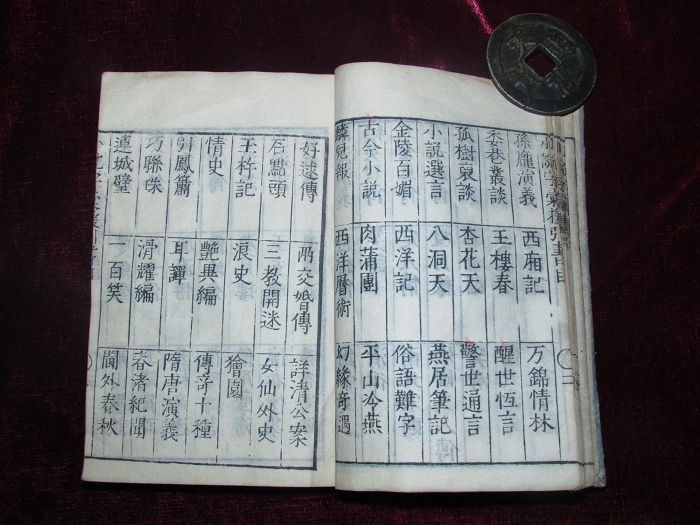 孫龐演義 西廂記 万錦情林
委巷叢談 玉樓春 醒世恆言
孤樹裒談 杏花天 警世通言
小說選言 八洞天 燕居筆記
金陵百媚 西洋記 俗語難字
古今小說 肉蒲團 平山冷燕
麟兒報 西洋曆術 幻緣奇遇
好逑傳 兩交婚傳 詳清公案
石點頭 三教開迷 女仙外史
玉杵記 浪史 獪園
情史 艷異編 傳奇十種
引鳳簫 耳譚 隋唐演義
巧聯珠 滑耀編 春渚紀聞
連城璧 一百笑 閫外春秋